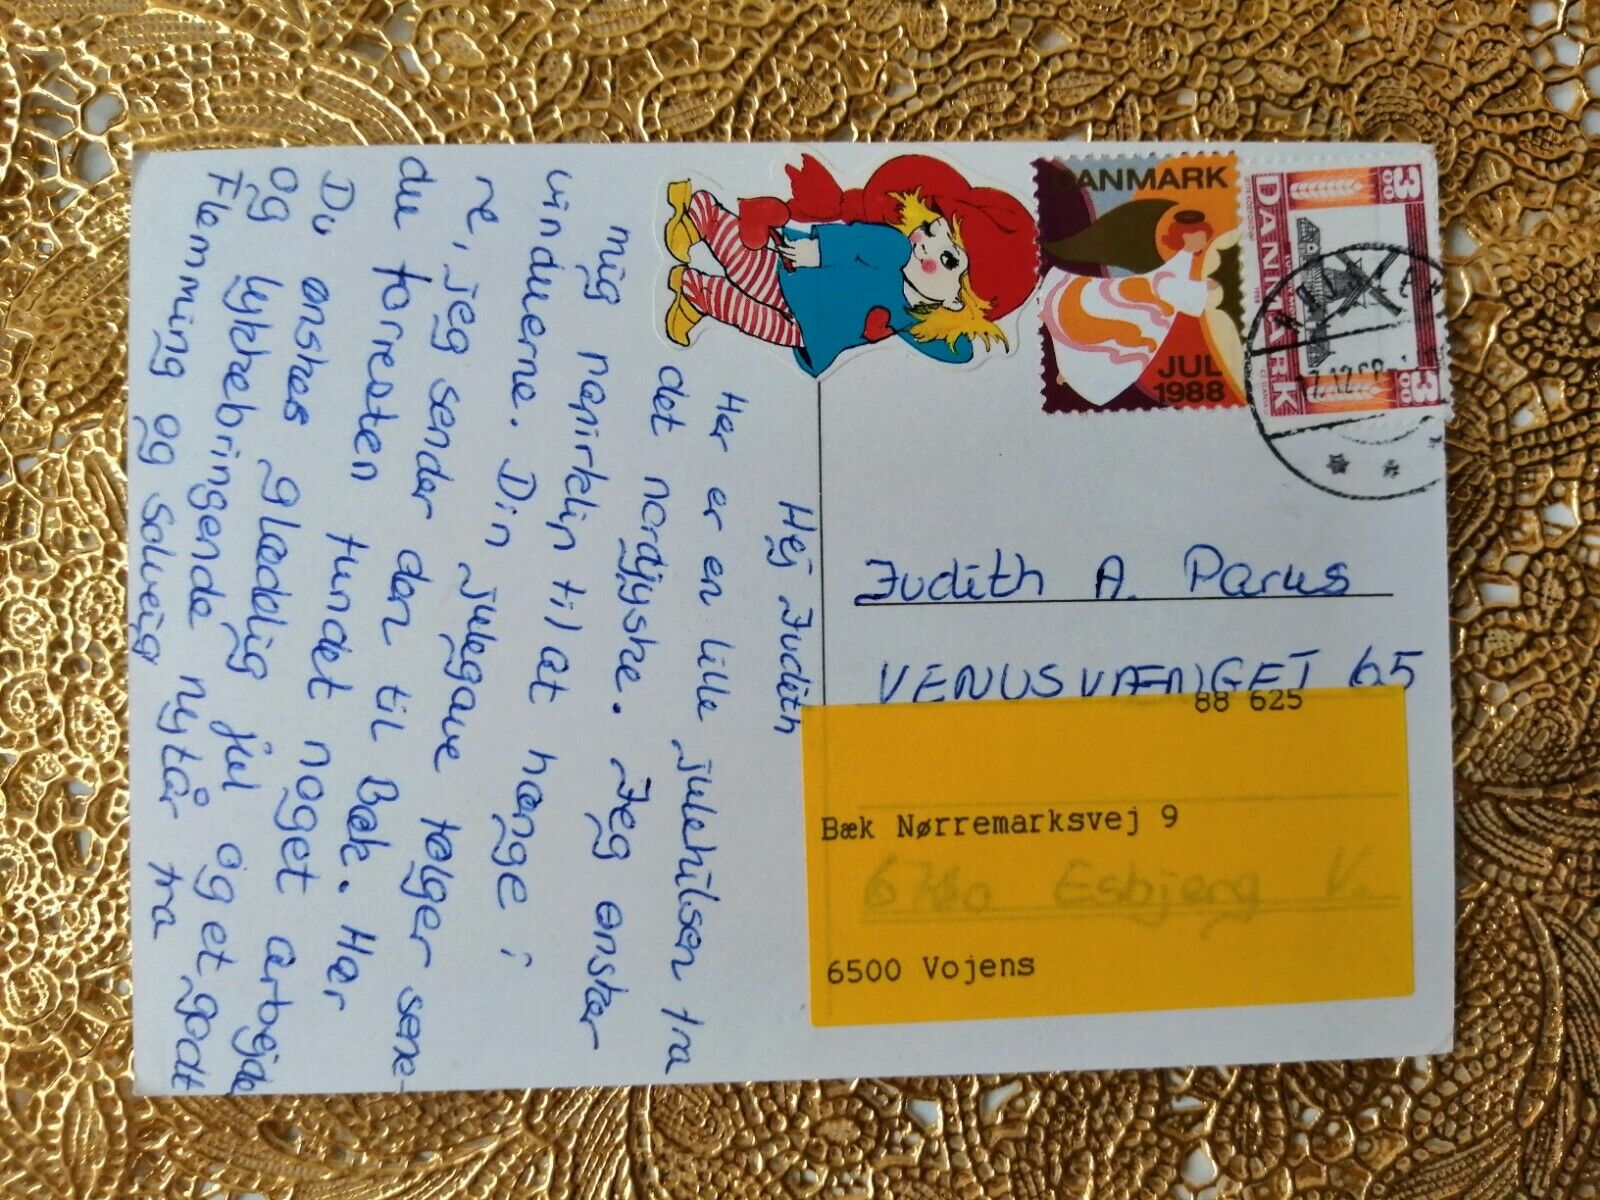 Hej Judith
Her er en lille julehilsen fra
det nordjyske. Jeg ønsker
mig nanirklin til at hænge i
vinduerne. Din julegave følger sene-
re, jeg sender den til Bæk. Har
du forresten fundet noget arbejde
Du ønskes glædelig jul og et godt
og lykkebringende nytår fra
Flemming og Solveig
DANMARK
JUL
1988
DANMARK
300
300
Judith A. Parus
VENUSVÆNGET 65
88 625
Bæk Nørremarksvej 9
6760 Esbjerg V.
6500 Vojens